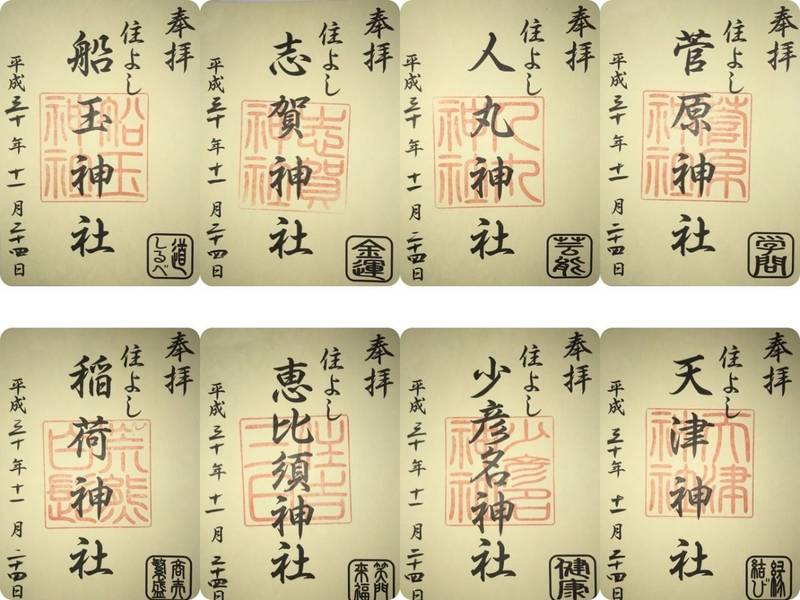 奉拝
住よし
船玉神社
船玉
神社
平成三十年十一月二十四日
道
しるべ
奉拝
住よし
志賀神社
志賀
神社
平成三十年十一月二十四日
金運
奉拝
住よし
人丸神社
人丸
神社
平成三十年十一月二十四日
芸能
奉拝
住よし
菅原神社
菅原
神社
平成三十年十一月二十四日
学問
奉拝
住よし
稲荷神社
荒熊
平成三十年十一月二十四日
商売
繁盛
奉拝
住よし
恵比須神社
平成三十年十一月二十四日
笑門
来福
奉拝
住よし
少彦名神社
少彦名
神社
平成三十年十一月二十四日
健康
奉拝
住よし
天津神社
天津
神社
平成三十年十一月二十四日
縁
結び